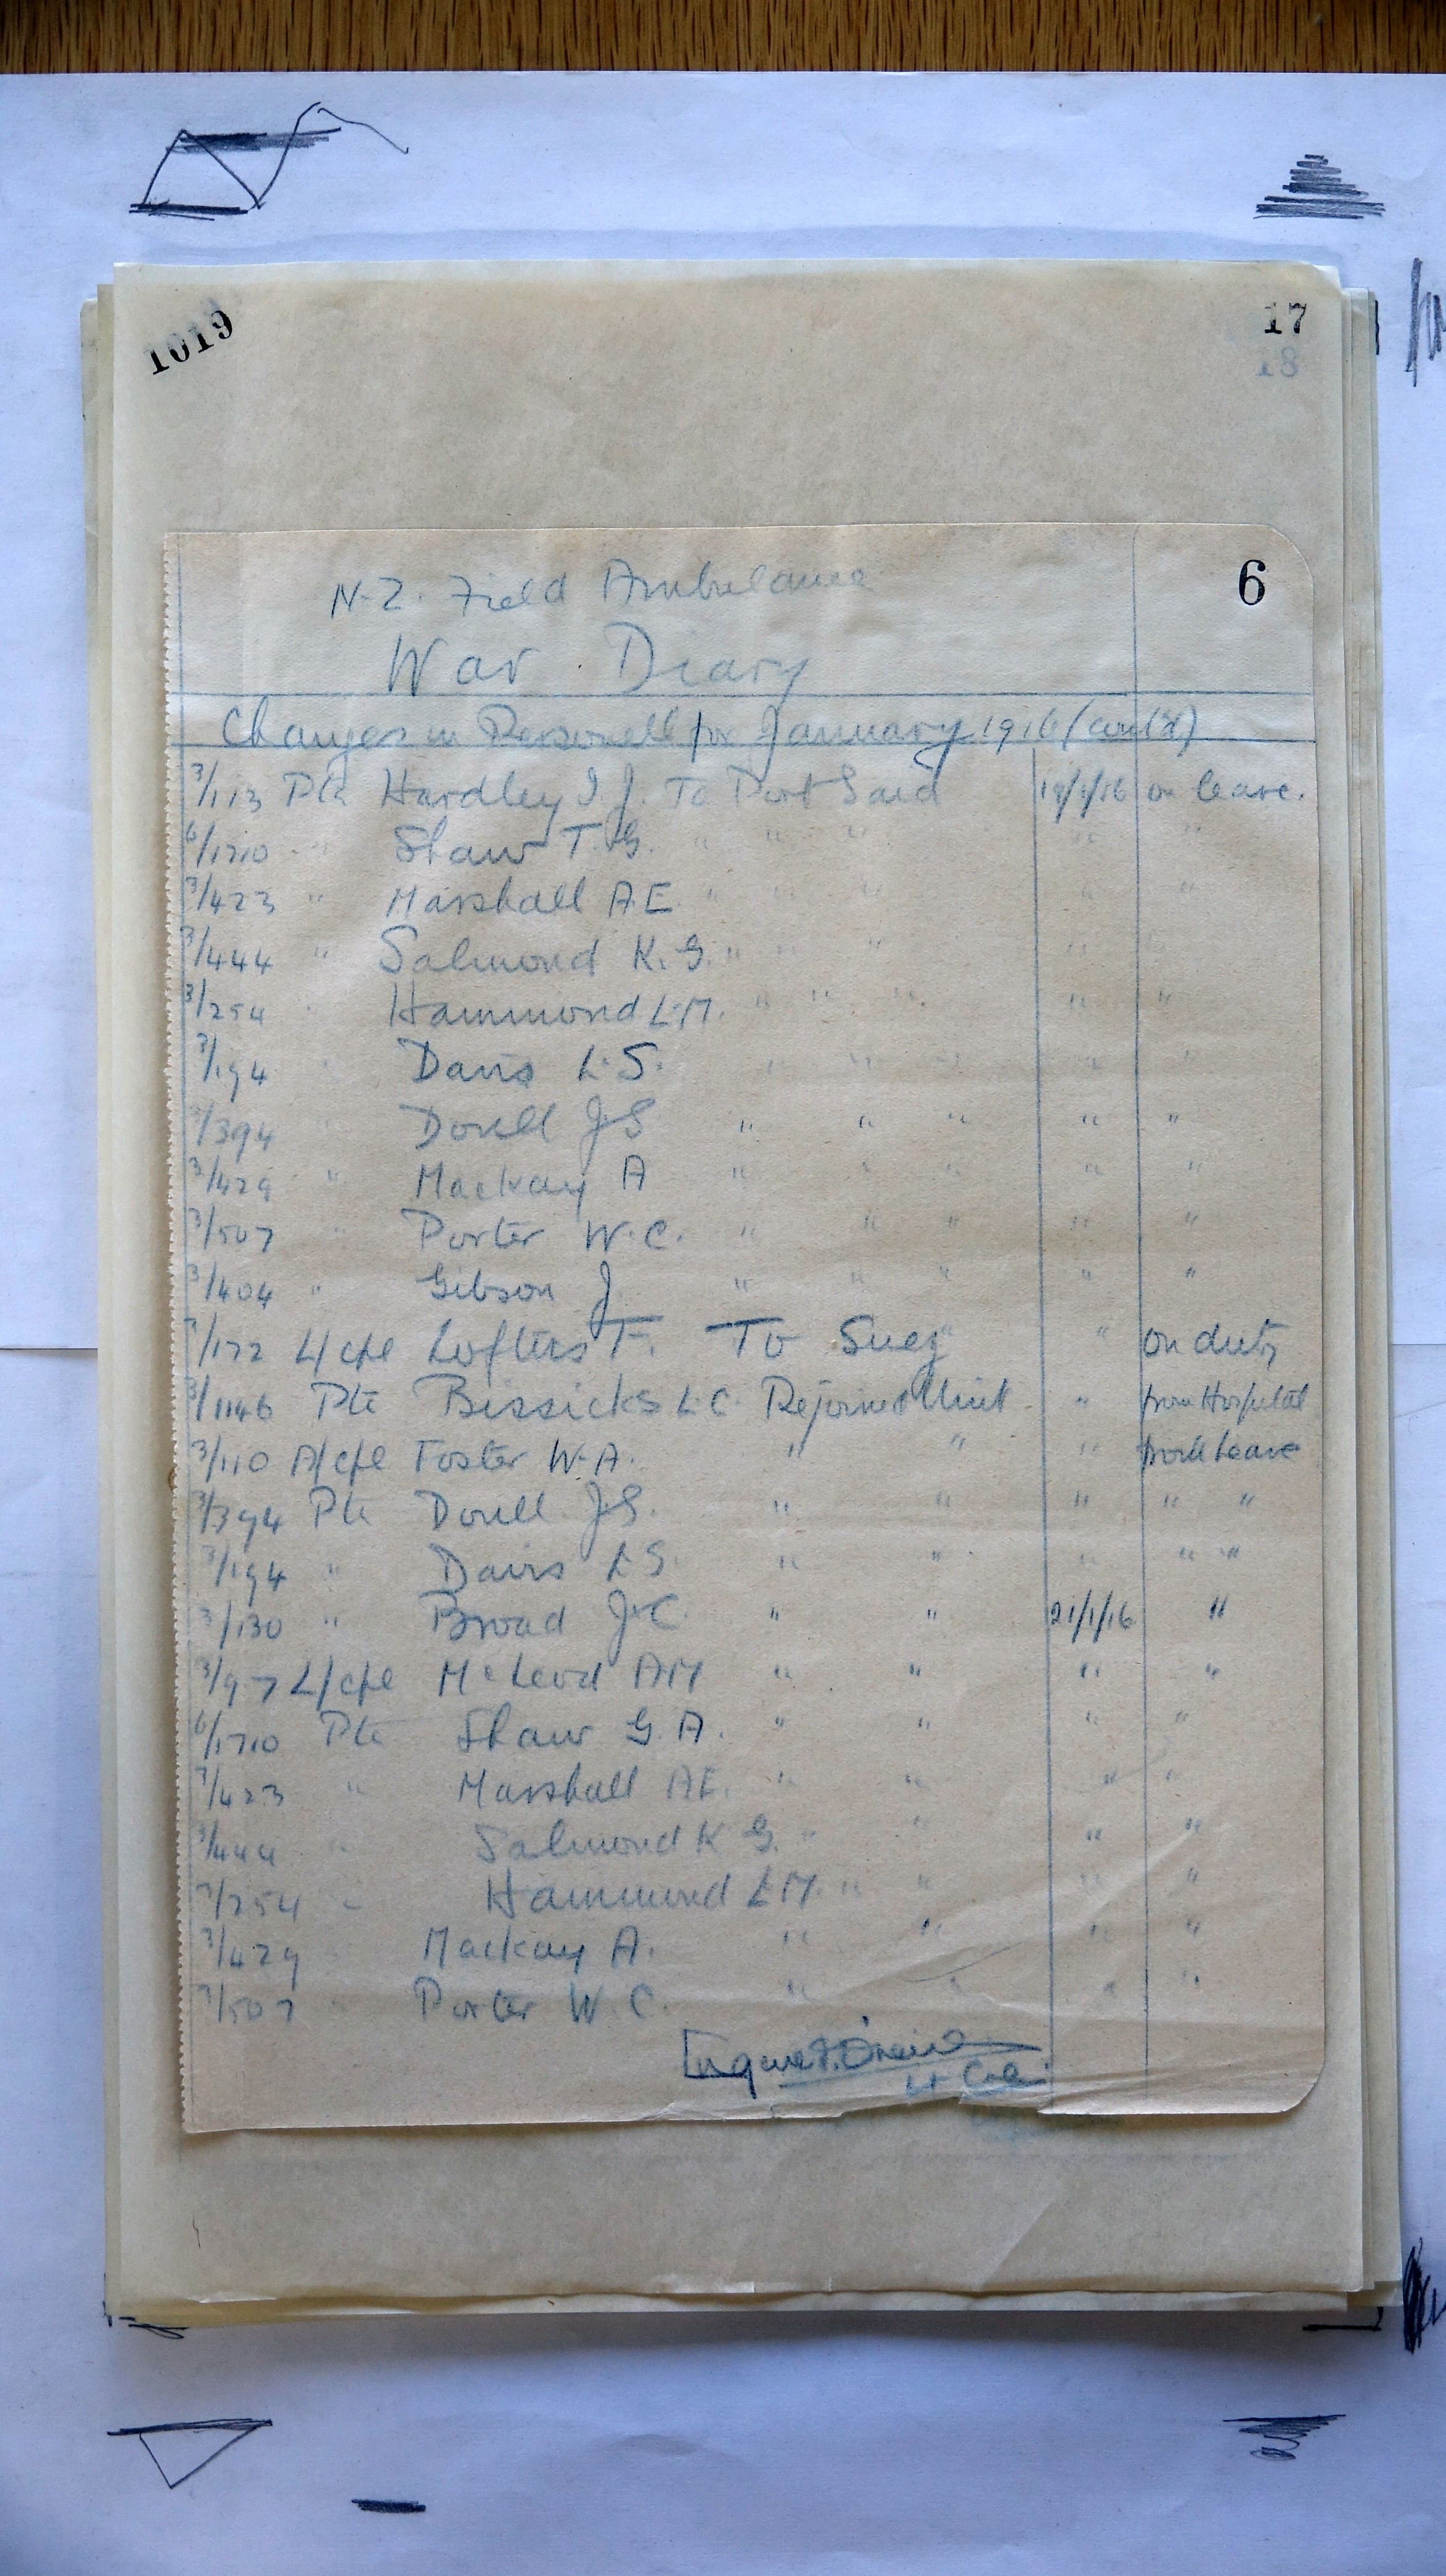 1019
17
18
6
N.Z. Field Ambulance
War Diary
Changes in Personell for January 1916 (cont'd)
3/113 Pte Hardley J. To Port Said 19/1/16 on leave.
6/1710 " Shaw T.G. " " " " "
3/423 " Marshall A.E. " " " " "
3/444 " Salmond K.G. " " " " "
3/254 " Hammond L.M. " " " " "
3/194 " Davis L.S. " " " " "
3/394 " Dorell J.S " " " " "
3/429 " Mackay A " " " " "
3/507 " Porter W.C. " " " " "
3/404 " Gibson J " " " " "
3/172 L/cpl Lofters F. To Suez " on duty
3/1146 Pte Bissicks L.C. Rejoined Unit " from Hospital
3/110 A/cpl Foster W.A. " " " from Leave
3/394 Pte Dorell J.S. " " " " "
3/194 " Davis L.S. " " " " "
3/130 " Broad J.C. " " 21/1/16 "
3/97 L/cpl McLeod A.M " " " "
6/1710 Pte Shaw G.A. " " " "
3/423 " Marshall A.E. " " " "
3/444 " Salmond K G. " " " "
3/254 " Hammond L.M. " " " "
3/429 " Mackay A. " " " "
3/507 " Porter W.C. " " " "
Lt Col